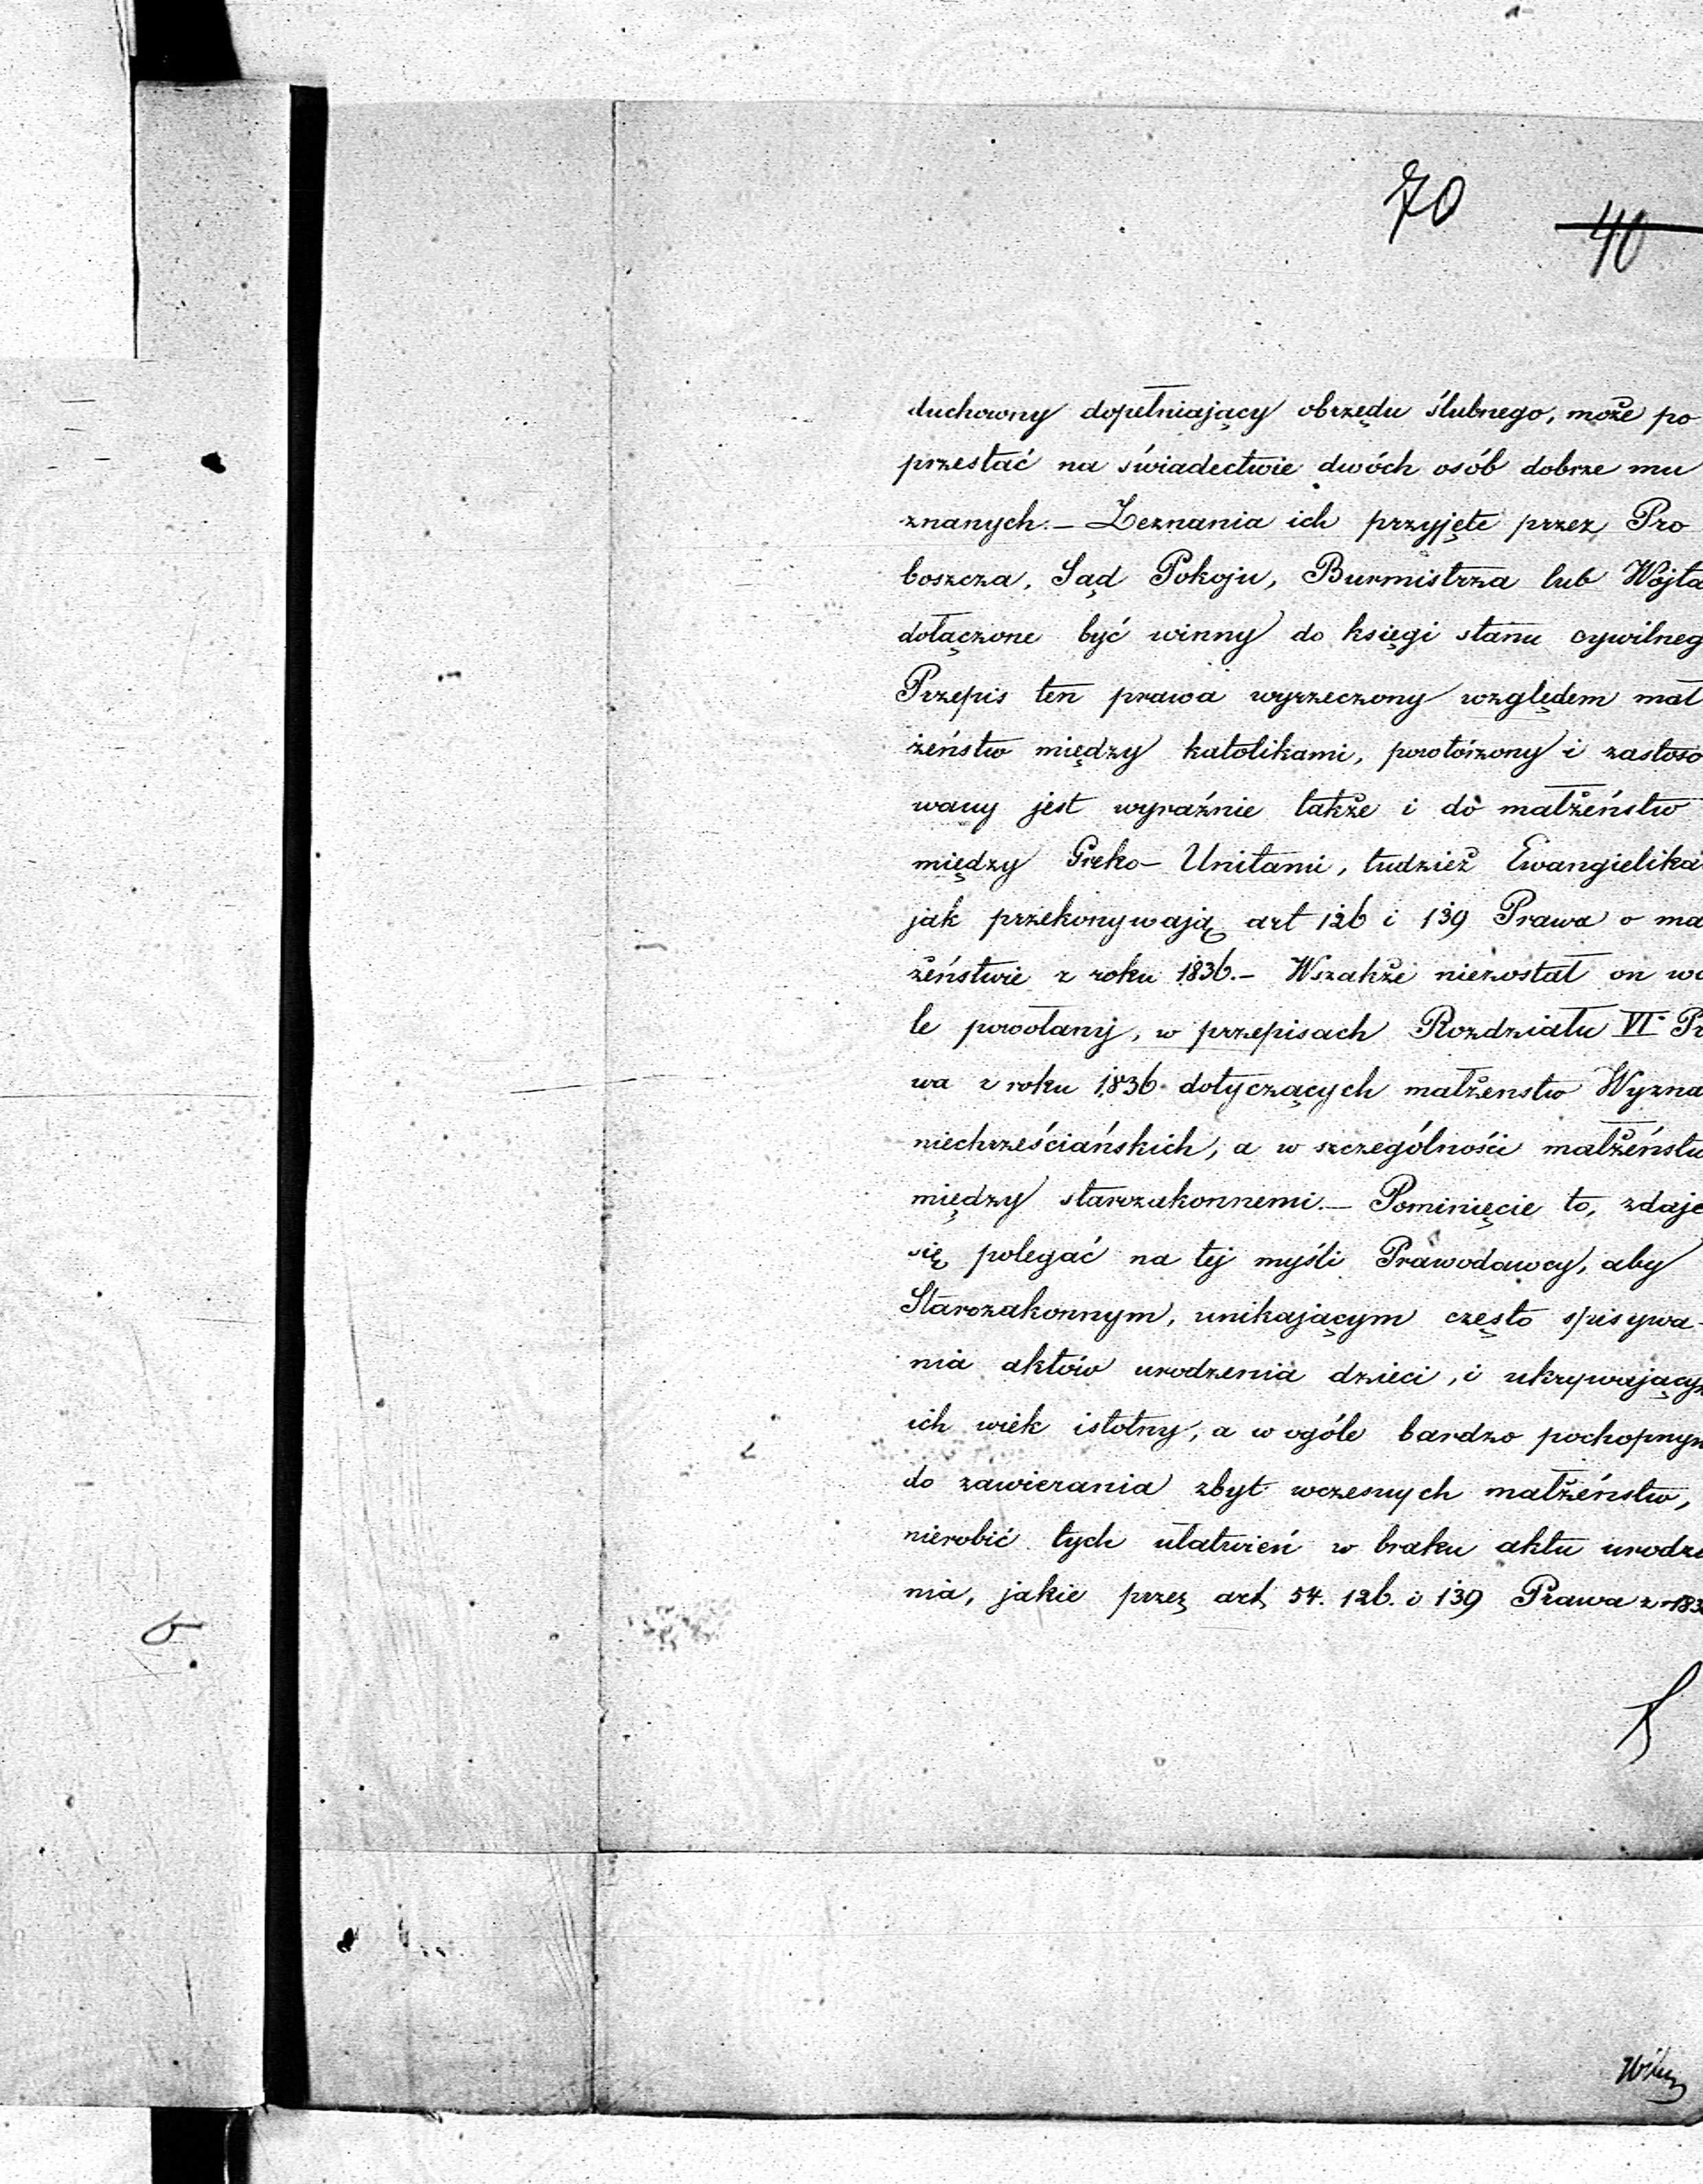 70
40
duchowny dopełniający obrzędu ślubnego, może po
przestać na świadectwie dwóch osób dobrze mu
znanych.— Zeznania ich przyjęte przez Pro
boszcza, Sąd Pokoju, Burmistrza lub Wójta
dołączone być winny do księgi stanu cywilneg
Przepis ten prawa wyrzeczony względem mał
żeństw między katolikami, powtórzony i zastoso
wany jest wyraźnie także i do małżeństw
między Greko-Unitami, tudzież Ewangielika
jak przekonywają art 126 i 139 Prawa o ma
żeństwie z roku 1836.— Wszakże niezostał on wc
le powołany, w przepisach Rozdziału VI Pr
wa z roku 1836 dotyczących małżenstw Wyzna
niechrześciańskich, a w szczególności małżeństw
między starozakonnemi.— Pominięcie to, zdaje
się polegać na tej myśli Prawodawcy, aby
Starozakonnym, unikającym często spisywa-
nia aktów urodzenia dzieci, i ukrywający
ich wiek istotny, a w ogóle bardzo pochopnym
do zawierania zbyt wczesnych małżeństw,
nierobić tych ułatwień w braku aktu urodze
nia, jakie przez art 54. 126. i 139 Prawa z 183